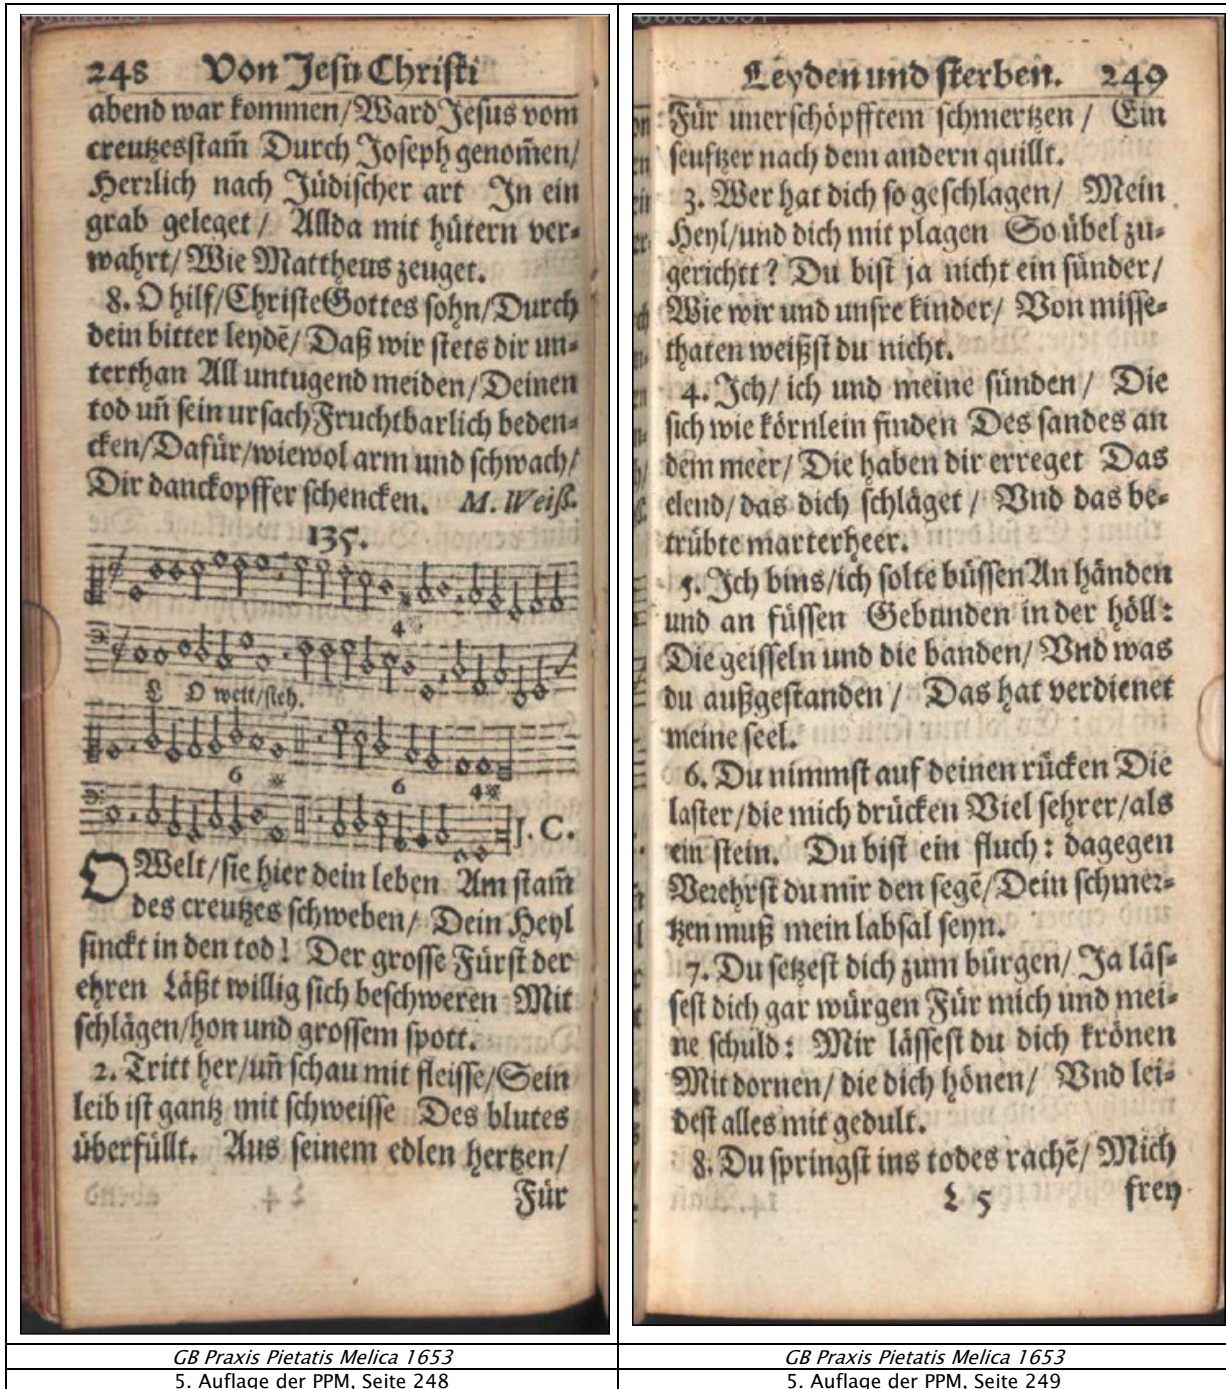 248 Von Jesu Christi
abend war kommen/Ward Jesus vom
creutzesstam̃ Durch Joseph genom̃en/
Herrlich nach Jüdischer art In ein
grab geleget / Allda mit hütern ver-
wahrt/ Wie Mattheus zeuget.
8. O hilf/Christe Gottes sohn/Durch
dein bitter leydẽ/ Daß wir stets dir un-
terthan All untugend meiden/Deinen
tod uñ sein ursach Fruchtbarlich beden-
cken/Dafür/wiewol arm und schwach/
Dir danckopffer schencken. M. Weiß.
135.
4
O welt/sieh.
6 6 4
J. C.
O Welt/sie hier dein leben Am stam̃
des creutzes schweben/ Dein Heyl
sinckt in den tod! Der grosse Fürst der
ehren Läßt willig sich beschweren Mit
schlägen/hon und grossem spott.
2. Tritt her/uñ schau mit fleisse/Sein
leib ist gantz mit schweisse Des blutes
überfüllt. Aus seinem edlen hertzen/
Für
Leyden und sterben. 249
Für unerschöpfftem schmertzen / Ein
seuftzer nach dem andern quillt.
3. Wer hat dich so geschlagen/ Mein
Heyl/und dich mit plagen So übel zu-
gerichtt? Du bist ja nicht ein sünder/
Wie wir und unsre kinder/ Von misse-
thaten weißst du nicht.
4. Jch/ ich und meine sünden/ Die
sich wie körnlein finden Des sandes an
dem meer/ Die haben dir erreget Das
elend/das dich schläget / Vnd das be-
trübte marterheer.
5. Jch bins/ich solte büssen An händen
und an füssen Gebunden in der höll:
Die geisseln und die banden/ Vnd was
du außgestanden / Das hat verdienet
meine seel.
6. Du nimmst auf deinen rücken Die
laster/die mich drücken Viel sehrer/als
ein stein. Du bist ein fluch: dagegen
Verehrst du mir den segẽ/Dein schmer-
tzen muß mein labsal seyn.
7. Du setzest dich zum bürgen/ Ja läs-
sest dich gar würgen Für mich und mei-
ne schuld: Mir lässest du dich krönen
Mit dornen/ die dich hönen/ Vnd lei-
dest alles mit gedult.
8. Du springst ins todes rachẽ/ Mich
L 5 frey
GB Praxis Pietatis Melica 1653
5. Auflage der PPM, Seite 248
GB Praxis Pietatis Melica 1653
5. Auflage der PPM, Seite 249